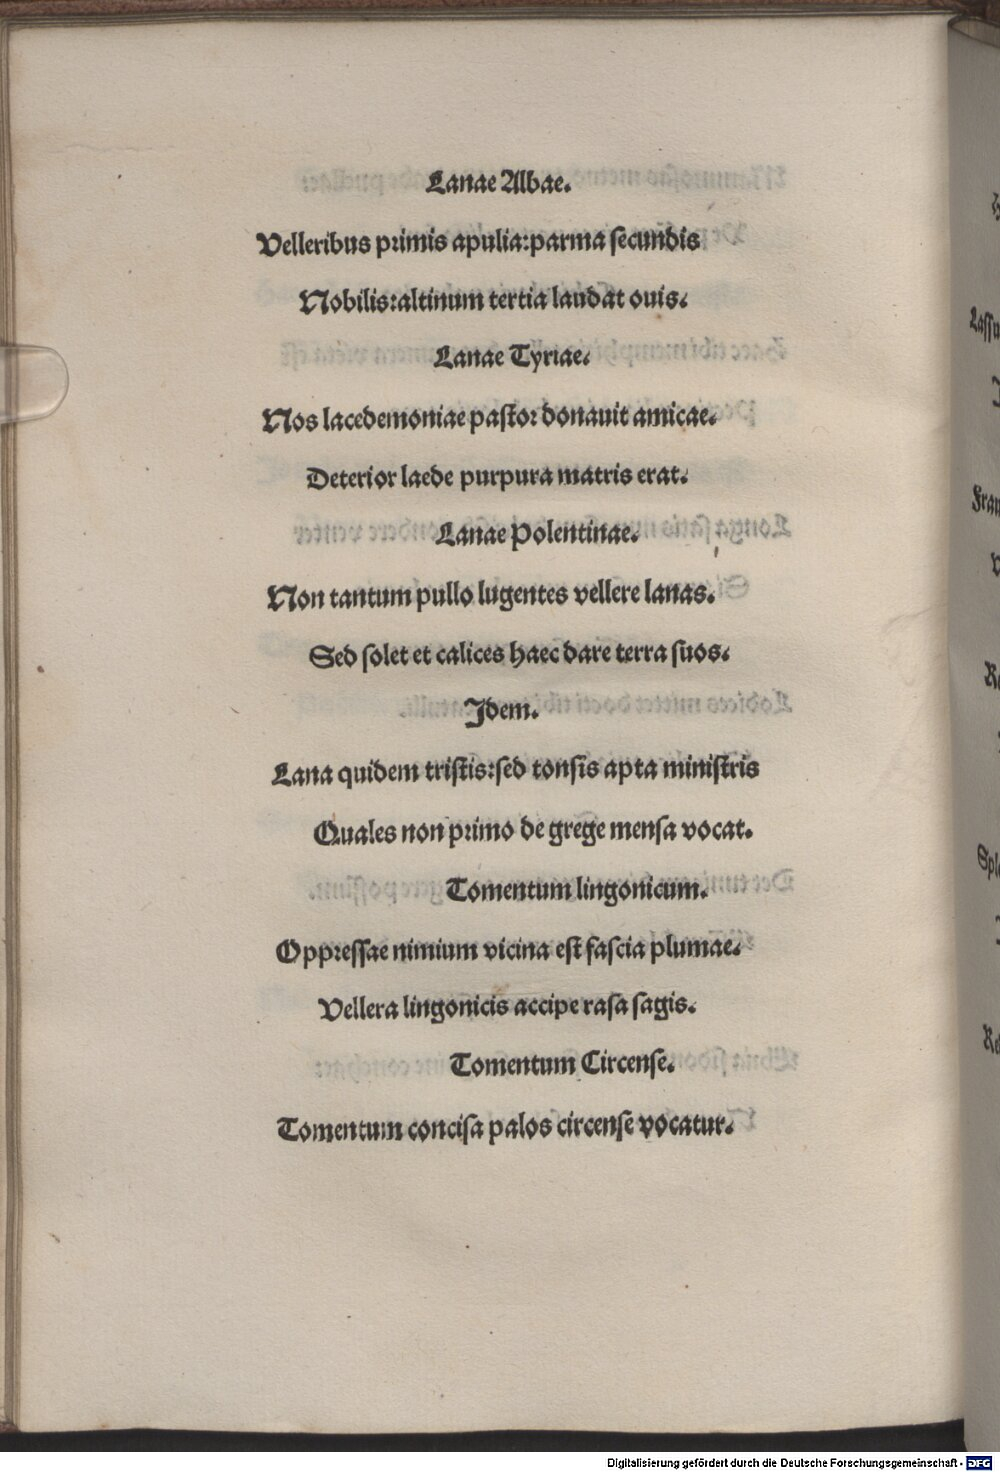 Lanae Albae.
Velleribus primis apulia: parma secundis
Nobilis: altinum tertia laudat ouis.
Lanae Tyriae.
Nos lacedemoniae pastor donauit amicae.
Deterior laede purpura matris erat.
Lanae Polentinae.
Non tantum pullo lugentes vellere lanas.
Sed solet et calices haec dare terra suos.
Idem.
Lana quidem tristis: sed tonsis apta ministris
Quales non primo de grege mensa vocat.
Tomentum lingonicum.
Oppressae nimium vicina est fascia plumae.
Vellera lingonicis accipe rasa sagis.
Tomentum Circense.
Tomentum concisa palos circense vocatur.
Digitalisierung gefördert durch die Deutsche Forschungsgemeinschaft - DFG